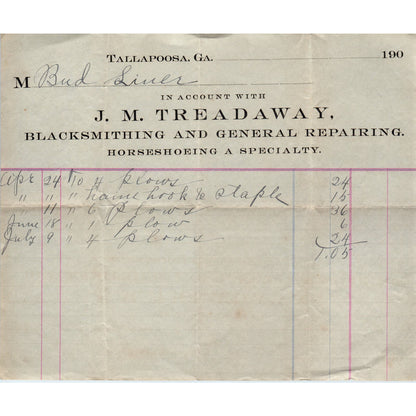 TALLAPOOSA, GA. 190
M Bud Liner
IN ACCOUNT WITH
J. M. TREADAWY,
BLACKSMITHING AND GENERAL REPAIRING.
HORSESHOEING A SPECIALTY.
Apr 24 4 plows 24
" " " hame hook & staple 15
" 11 " 6 plows 36
June 18 " 1 plow 6
July 9 " 4 plows 24
1.05